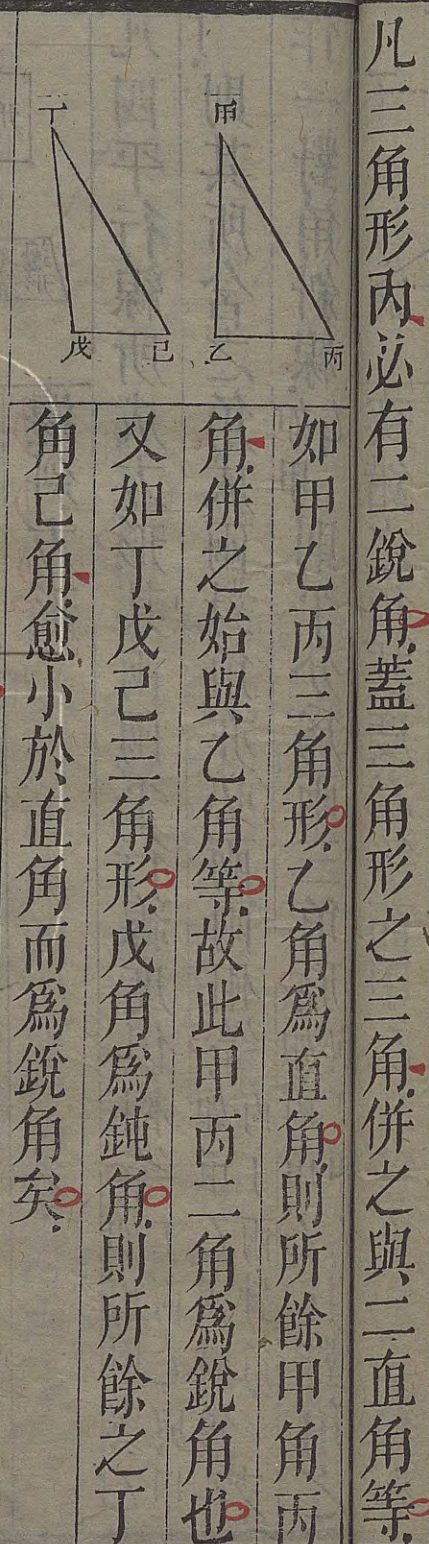 凡三角形內必有二銳角蓋三角形之三角併之與二直角等
如甲乙丙三角形乙角爲直角則所餘甲角丙
角併之始與乙角等故此甲丙二角爲銳角也
又如丁戊己三角形戊角爲鈍角則所餘之丁
角己角愈小於直角而爲銳角矣
甲
乙
丙
丁
戊
己